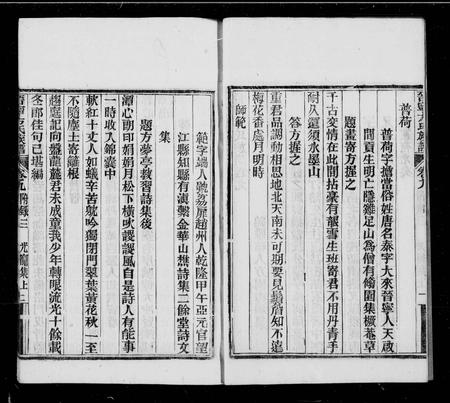 普荷
普荷字擔當俗姓唐名泰字大來晉寧人天啟
間貢生明亡隱雞足山為僧有翛園集橛菴草
題畫寄方握之
千古交情在此間拈豪有凝雪生斑寄君不用丹青手
耐久還須水墨山
答方握之
重君品調動相思地北天南未可期要見
知不遠
梅花香處月明時
師範
範字端人號荔扉趙州人乾隆甲午亞元官望
江縣知縣有滇繫金華山樵詩集二餘堂詩文
集
題方夢亭教習詩集後
潭心朗印娟娟月松下橫吹謖謖風自是詩人有能事
一時收入錦囊中
軟紅十丈人如蟻辛苦航吟獨閉門翠葉黃花秋一至
不隨塵土寄籬根
趨庭記向盤龍麓君未成童我少年轉眼流光十餘載
冬郎佳句已堪編
卷九附錄三
光
集上二